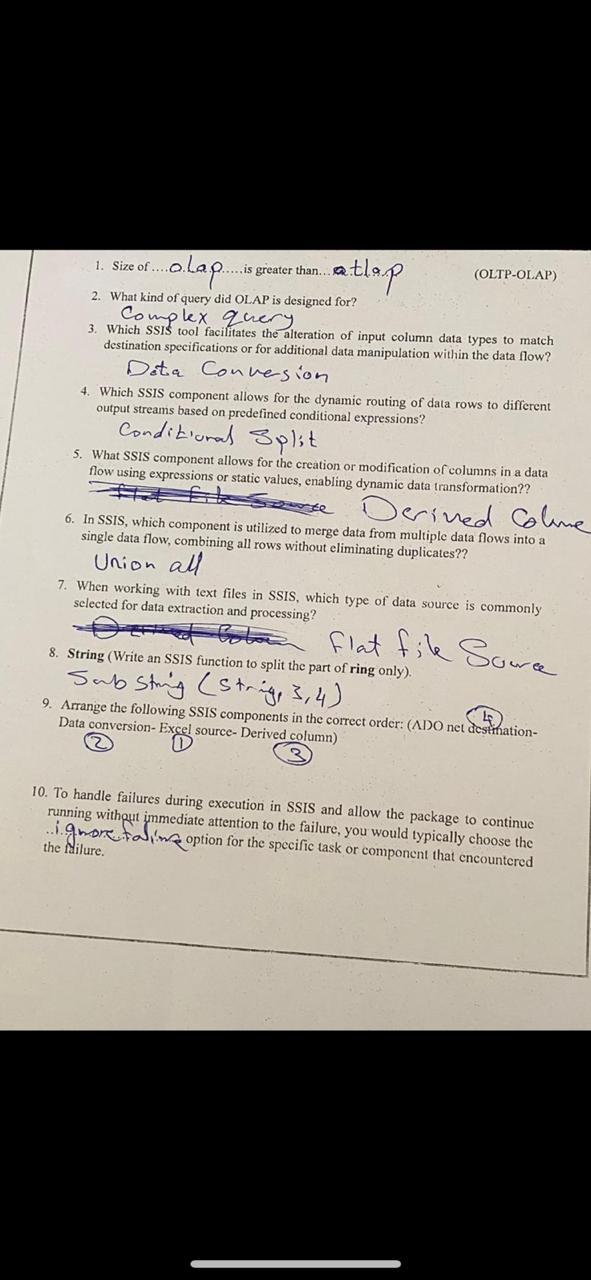 1. Size of ....olap.....is greater than...otlap (OLTP-OLAP)
2. What kind of query did OLAP is designed for?
Complex query
3. Which SSIS tool facilitates the alteration of input column data types to match
destination specifications or for additional data manipulation within the data flow?
Data Conversion
4. Which SSIS component allows for the dynamic routing of data rows to different
output streams based on predefined conditional expressions?
Conditional Split
5. What SSIS component allows for the creation or modification of columns in a data
flow using expressions or static values, enabling dynamic data transformation??
Flat File Source Derived Colume
6. In SSIS, which component is utilized to merge data from multiple data flows into a
single data flow, combining all rows without eliminating duplicates??
Union all
7. When working with text files in SSIS, which type of data source is commonly
selected for data extraction and processing?
Derived Colum flat file Source
8. String (Write an SSIS function to split the part of ring only).
Sub string (string, 3,4)
9. Arrange the following SSIS components in the correct order: (ADO net destination-
4
Data conversion- Excel source- Derived column)
2 1 3
10. To handle failures during execution in SSIS and allow the package to continue
running without immediate attention to the failure, you would typically choose the
..ignore failure option for the specific task or component that encountered
the failure.